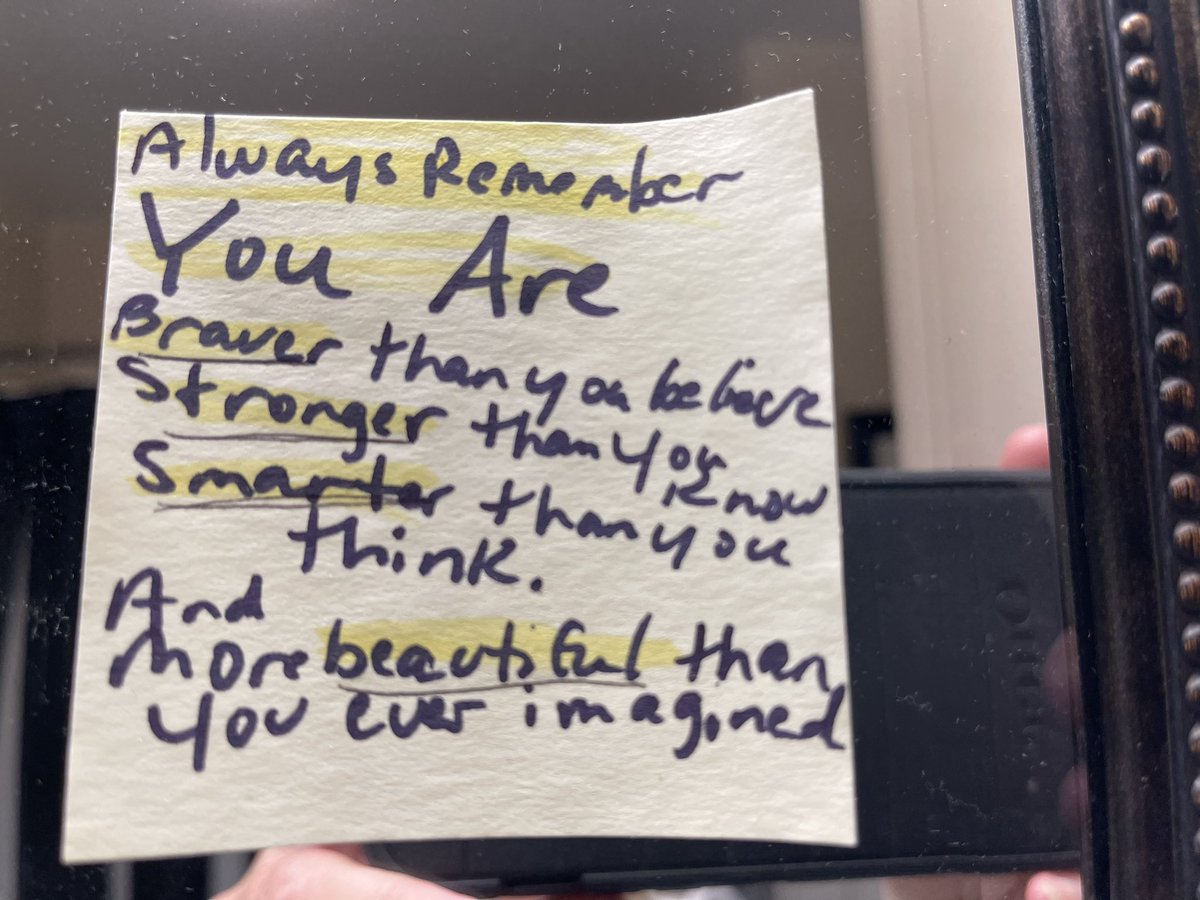 Always Remember
You Are
Braver than you believe
Stronger than you know
Smarter than you
think.
And
more beautiful than
you ever imagined